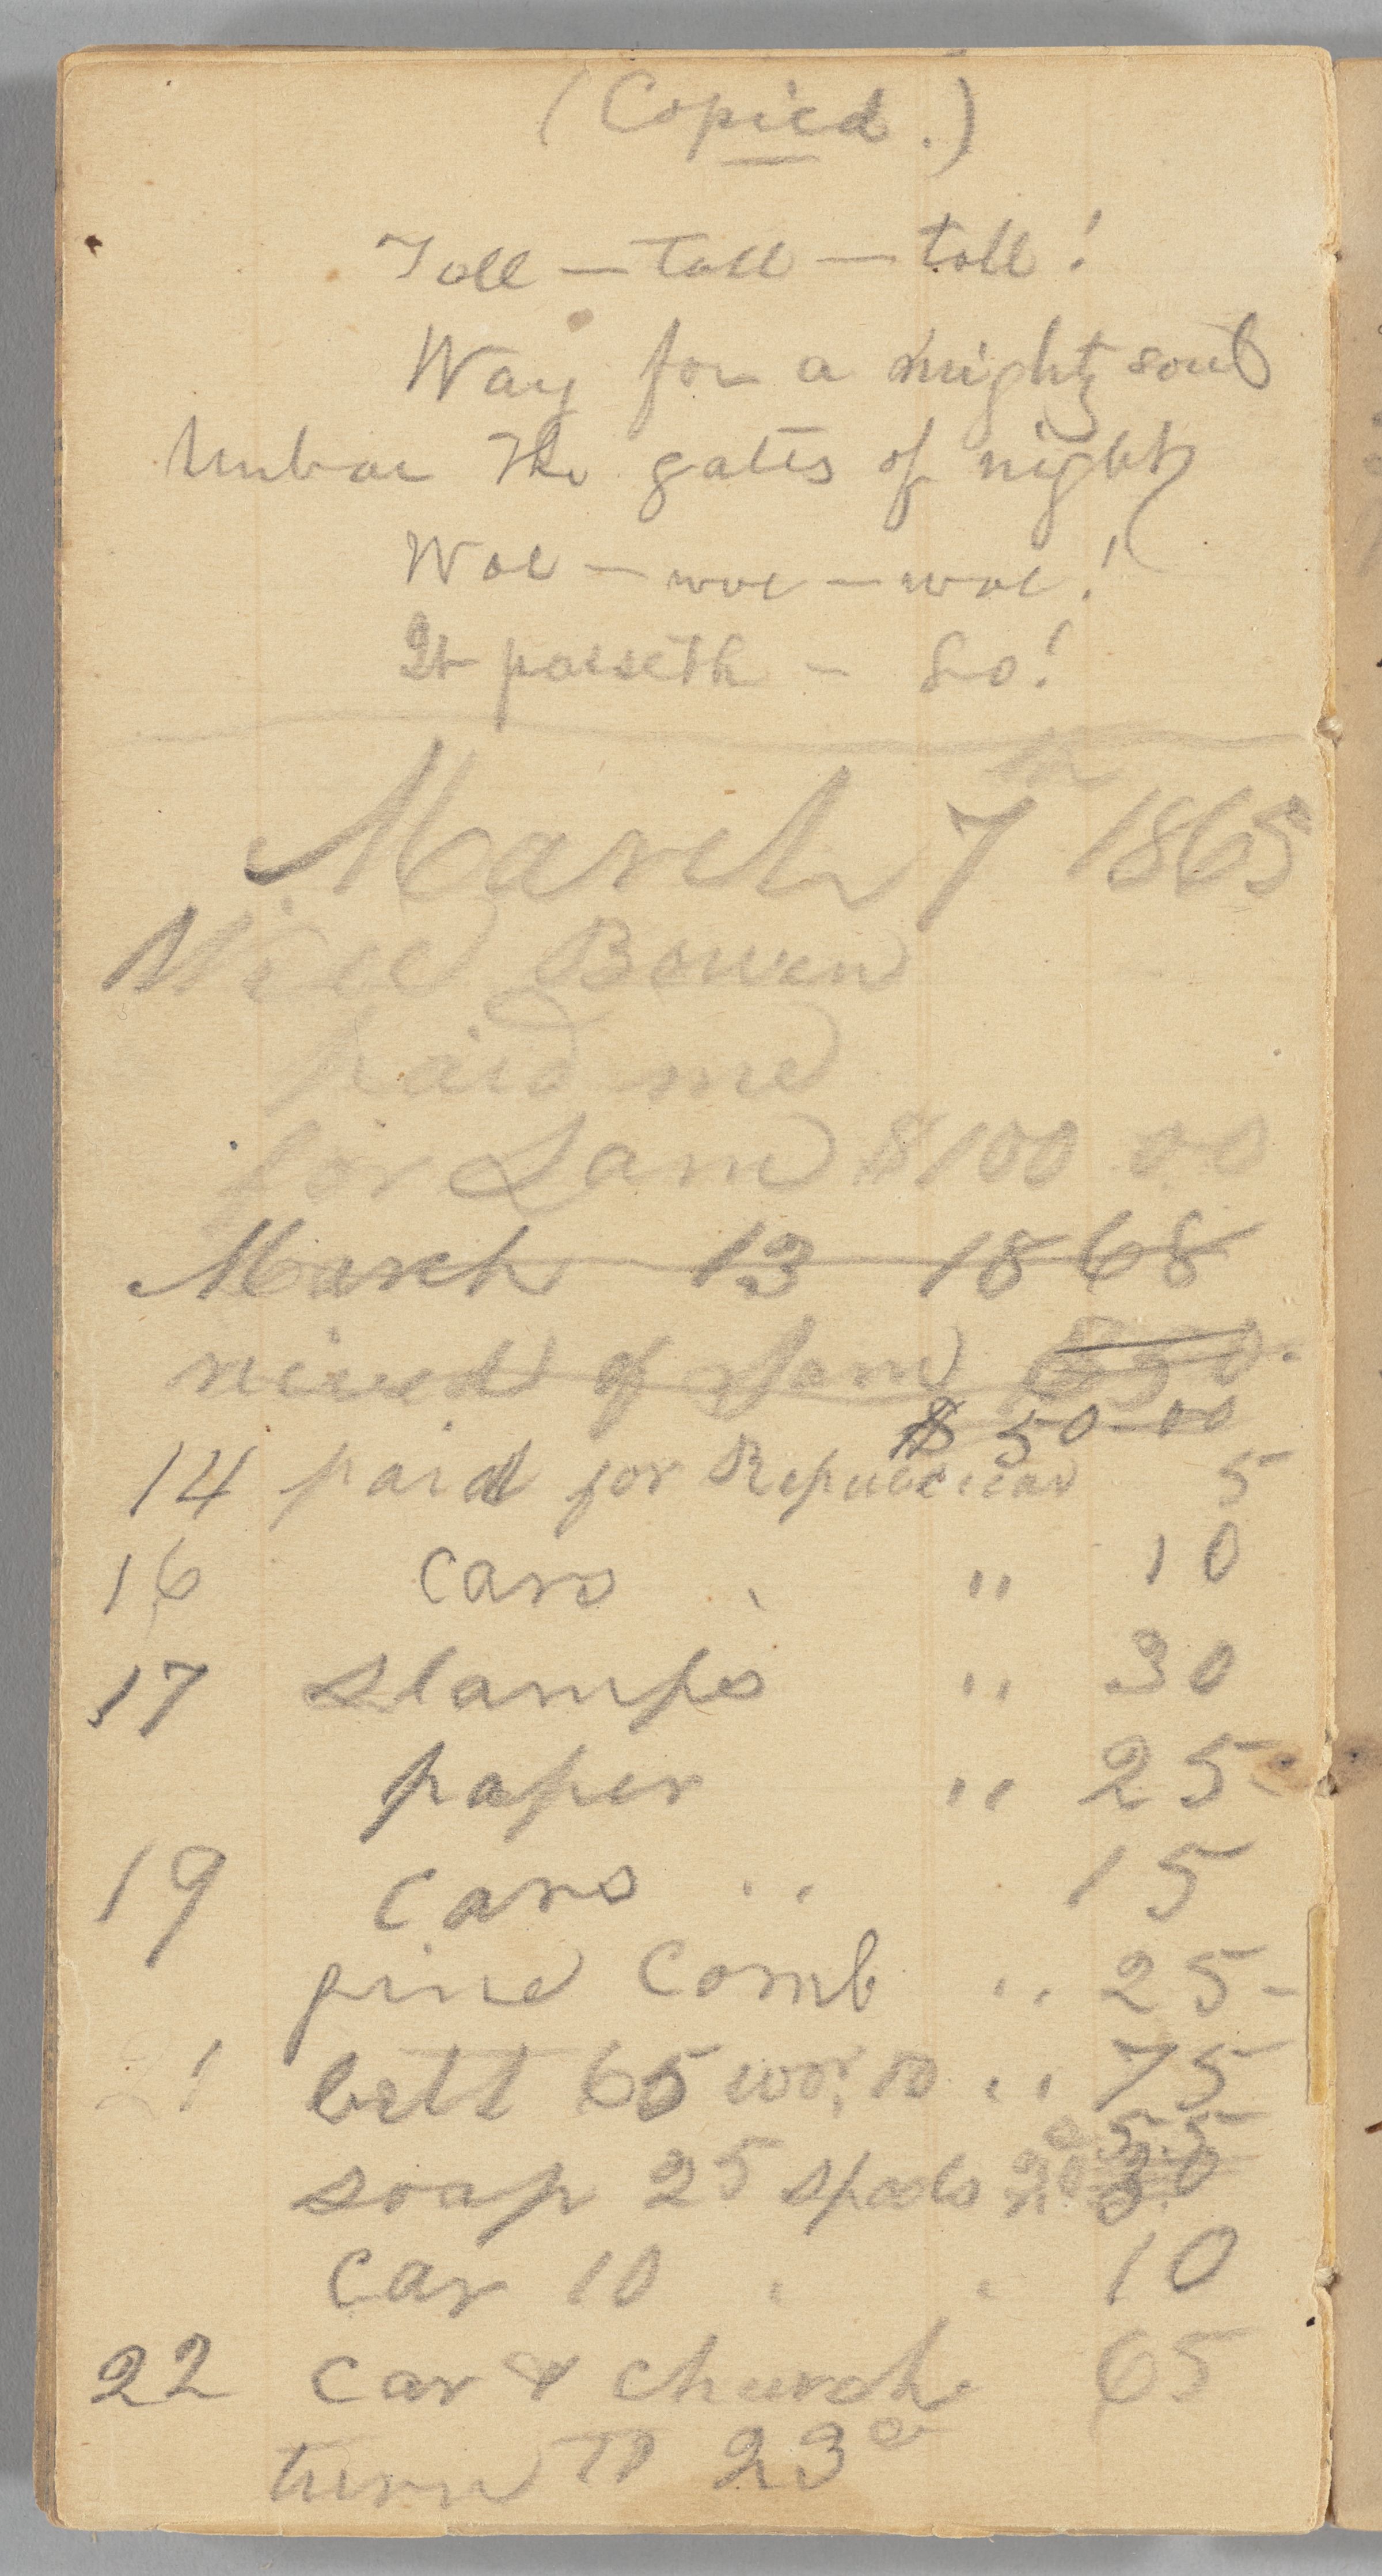 (Copied.)
Toll — toll — toll!
Way for a mighty soul
Unbar The gates of night
Woe — woe — woe!
It passeth — Lo!
March 7th 1865
Bowen
paid me
for Sam $100 00
March 13 1868
of Sam $50.
$50.00
14 paid for Republican 5
16 cars " 10
17 stamps " 30
paper " 25
19 cars " 15
pine comb " 25
21 belt 65 10 " 75
soap 25 spools 30 55
car 10 10
22 car & church 65
turn to 23